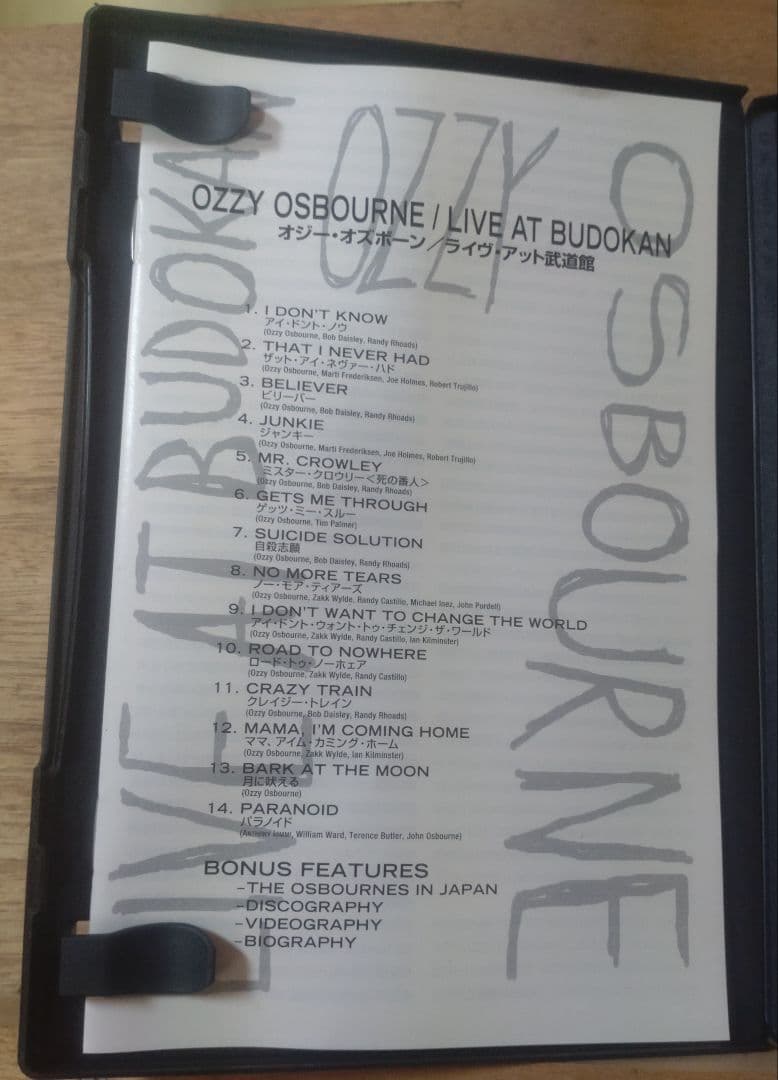 OZZY
OSBOURNE
LIVE AT BUDOKAN
OZZY OSBOURNE / LIVE AT BUDOKAN
オジー・オズボーン／ライヴ・アット武道館
1. I DON'T KNOW
アイ・ドント・ノウ
(Ozzy Osbourne, Bob Daisley, Randy Rhoads)
2. THAT I NEVER HAD
ザット・アイ・ネヴァー・ハド
(Ozzy Osbourne, Marti Frederiksen, Joe Holmes, Robert Trujillo)
3. BELIEVER
ビリーバー
(Ozzy Osbourne, Bob Daisley, Randy Rhoads)
4. JUNKIE
ジャンキー
(Ozzy Osbourne, Marti Frederiksen, Joe Holmes, Robert Trujillo)
5. MR. CROWLEY
ミスター・クロウリー＜死の番人＞
(Ozzy Osbourne, Bob Daisley, Randy Rhoads)
6. GETS ME THROUGH
ゲッツ・ミー・スルー
(Ozzy Osbourne, Tim Palmer)
7. SUICIDE SOLUTION
自殺志願
(Ozzy Osbourne, Bob Daisley, Randy Rhoads)
8. NO MORE TEARS
ノー・モア・ティアーズ
(Ozzy Osbourne, Zakk Wylde, Randy Castillo, Michael Inez, John Purdell)
9. I DON'T WANT TO CHANGE THE WORLD
アイ・ドント・ウォント・トゥ・チェンジ・ザ・ワールド
(Ozzy Osbourne, Zakk Wylde, Randy Castillo, Ian Kilminster)
10. ROAD TO NOWHERE
ロード・トゥ・ノーホェア
(Ozzy Osbourne, Zakk Wylde, Randy Castillo)
11. CRAZY TRAIN
クレイジー・トレイン
(Ozzy Osbourne, Bob Daisley, Randy Rhoads)
12. MAMA, I'M COMING HOME
ママ、アイム・カミング・ホーム
(Ozzy Osbourne, Zakk Wylde, Ian Kilminster)
13. BARK AT THE MOON
月に吠える
(Ozzy Osbourne)
14. PARANOID
パラノイド
(Anthony Iommi, William Ward, Terence Butler, John Osbourne)
BONUS FEATURES
–THE OSBOURNES IN JAPAN
–DISCOGRAPHY
–VIDEOGRAPHY
–BIOGRAPHY